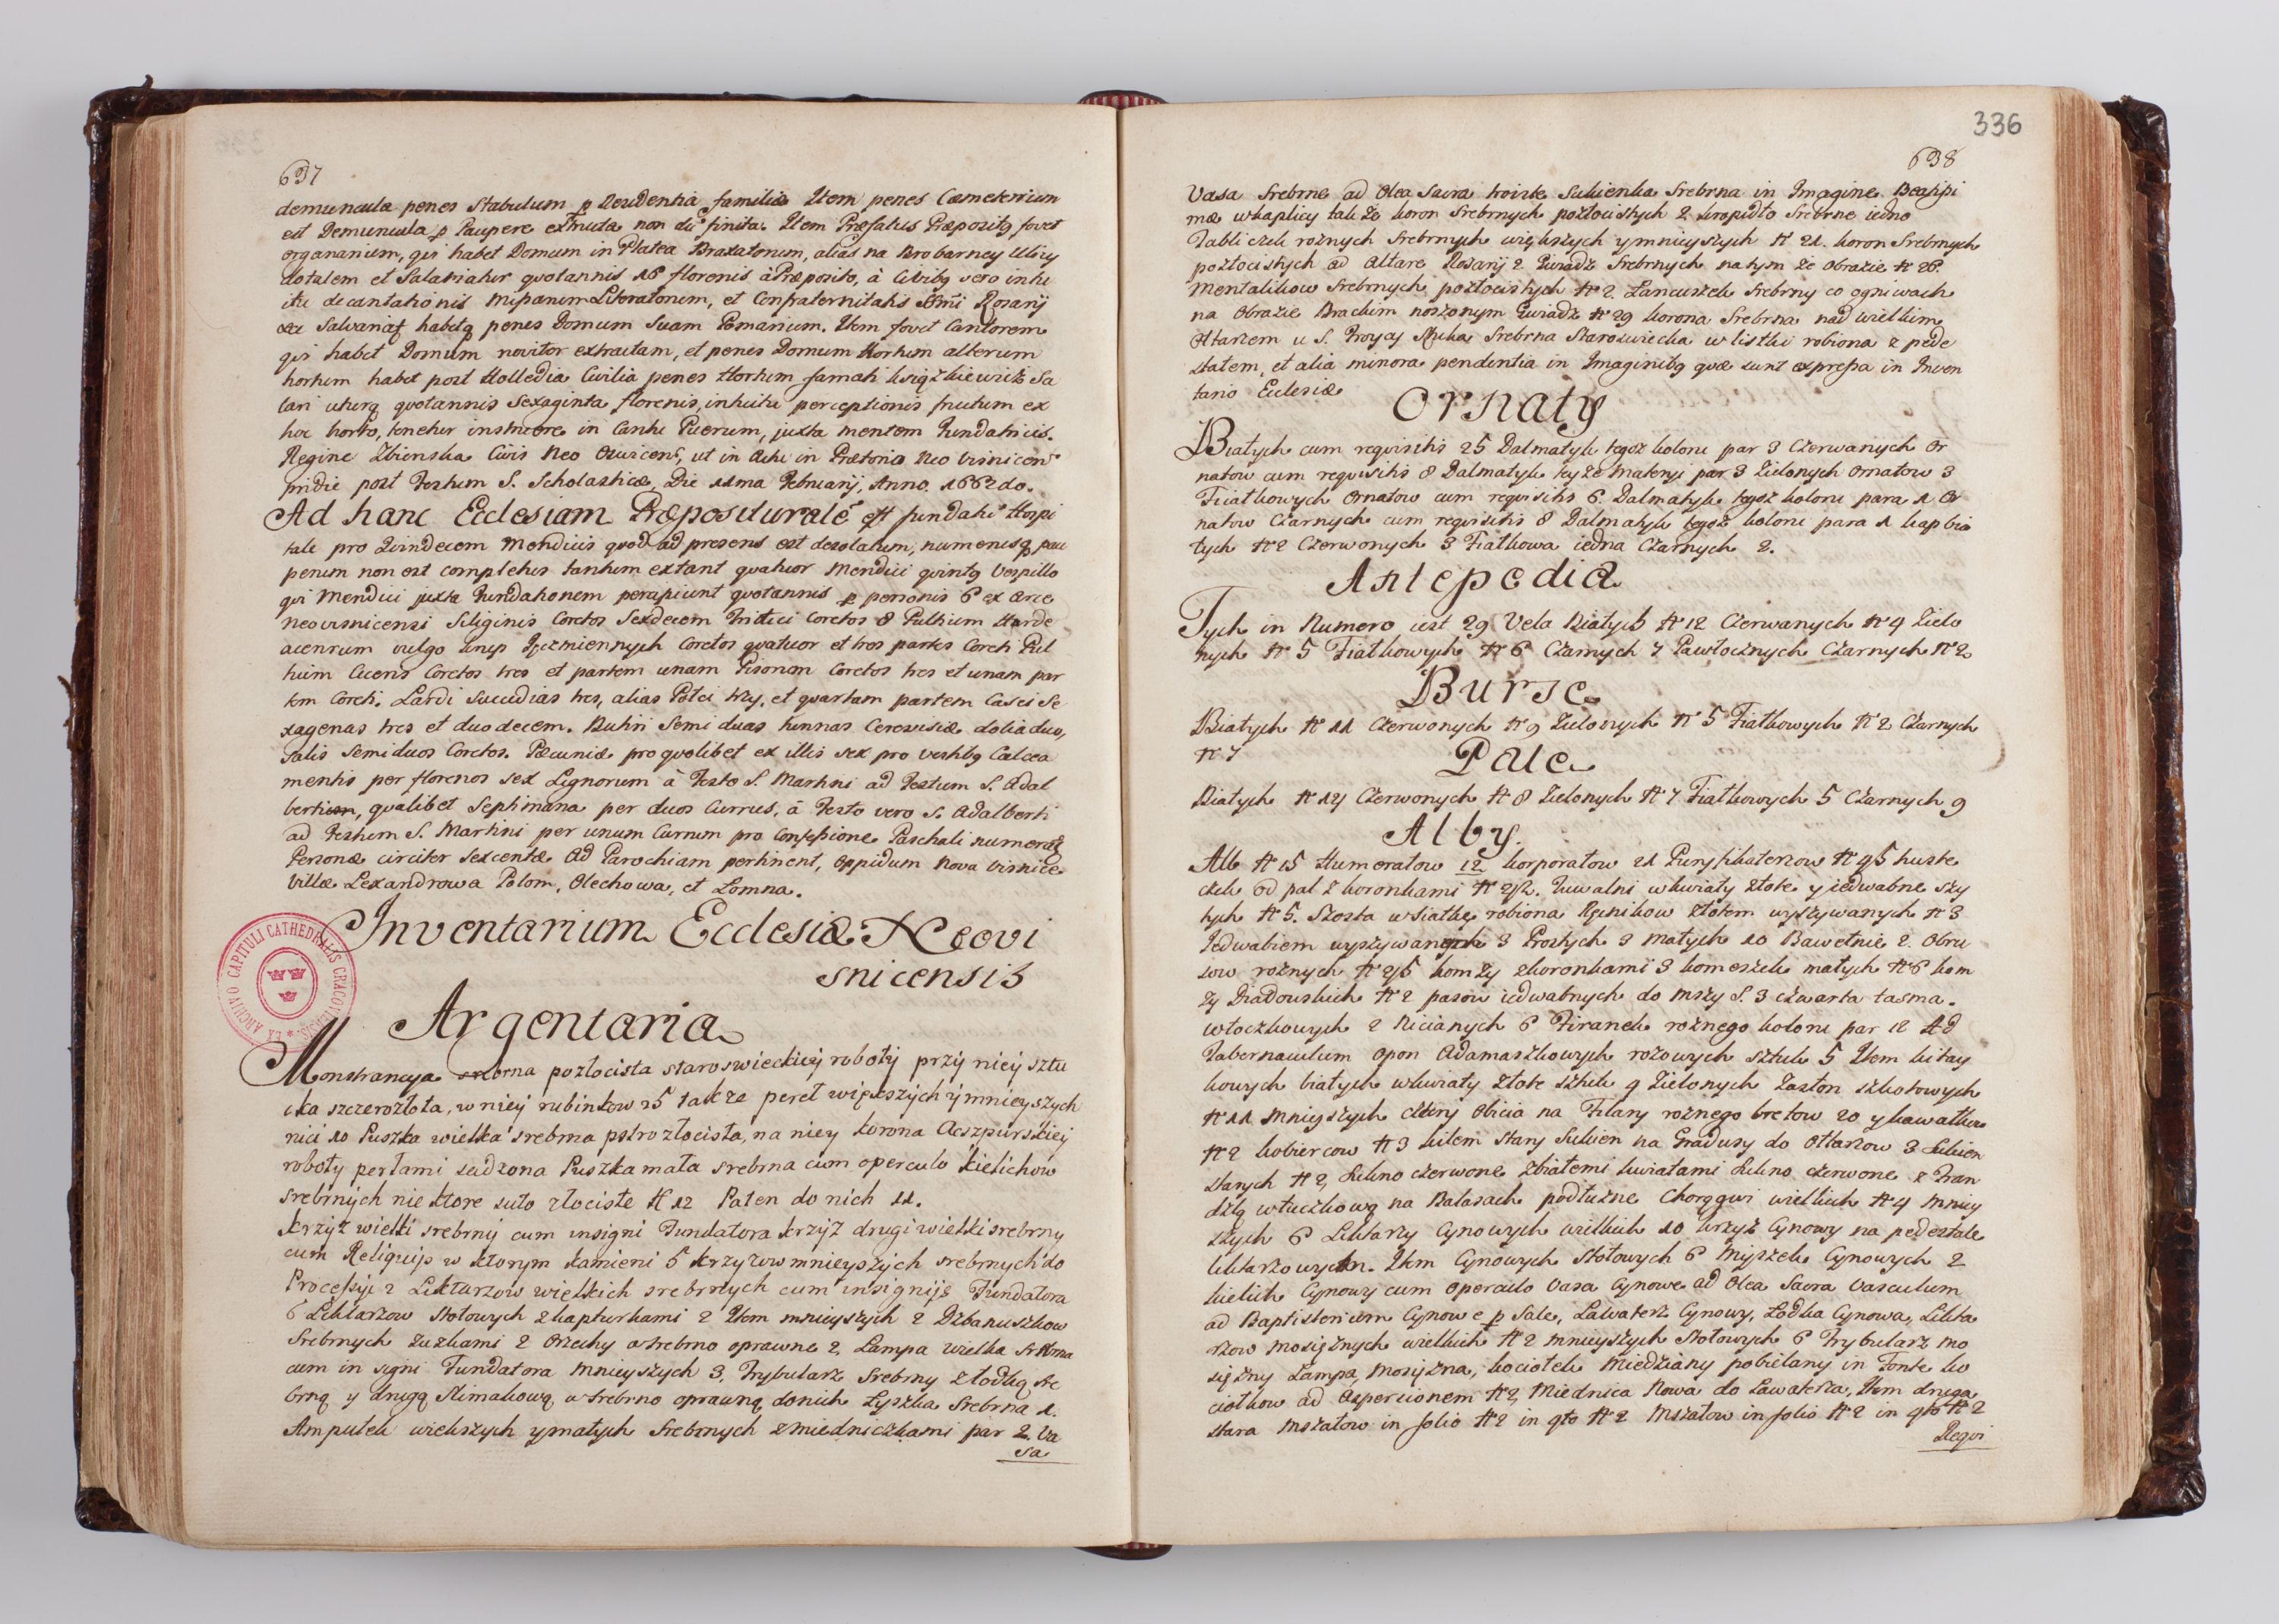 637
demuncula penes Stabulum p Residentia familiæ Item penes Cæmeterium
est Demuncula p Paupere extructa non dũ finita. Item Præfatus Præpositg fovet
organarium, qui habet Domum in Platea Braxatorum, alias na Brobarney Ulicy
dotalem et Salariatur quotannis 16 florenis à Præposito, à Civibg vero intu
itu decantationis Missarum Literatorum, et Confraternitatis SSmi Rosarij
habetq penes Domum Suam Pomarium. Item fovet Cantorem
qui habet Domum noviter extructam, et penes Domum Hortum alterum
hortum habet post Civilia penes Hortum famati Książkiewicz Sa
lari utuntur quotannis Sexaginta florenis, intuitu perceptionis fructum ex
hoc horto, tenetur instruere in Cantu Puerum, juxta mentem Fundatricis.
Regine Zbienska Civis Neo ut in Actu in Prætorio Neo Visnicen
pridie post Festum S. Scholasticæ, Die 11ma Februarij, Anno. 1662do.
Ad hanc Ecclesiam Præposituralé est fundatũ Hospi
tale pro Quindecem Mendicis quod ad presens est desolatum, numerusq pau
perum non est completus tantum extant quatuor Mendici quintg Vespillo
qui Mendici juxta Fundationem percipiunt quotannis p personis 6 ex Arce
neovisnicensi Siliginis Coretos Sexdecem Tritici Coretos 8 Pultium Harde
acenrum vulgo Krup Ięczmiennych Coretos quatuor et tres partes Coreti Pul
tium Cicens Coretos tres et partem unam Pisonom Coretos tres et unam par
tem Coreti. Lardi Succidias tres, alias Połci trzy, et quartam partem Casei Se
xagenas tres et duodecem. Butiri Semi duas tunnas Cerevisiæ dolia duo,
Salis Semiduos Coretos. Pecuniæ pro quolibet ex illis sex pro vestibg Calcea
mentis per florenos sex Lignorum à Festo S. Martini ad Festum S. Adal
bertiem, qualibet Septimana per duos Currus, à Festo vero S. Adalberti
ad Festum S. Martini per unum Currum pro Confessione Paschali numeratæ
Personæ circiter sexcentæ Ad Parochiam pertinent, Oppidum Nova Visnice
Villæ Lexandrowa Polom, Olechowa, et Lomna.
Inventarium Ecclesiæ Neovi
snicensis
EX ARCHIVO CAPITULI CATHEDRALIS CRACOVIENSIS
Argentaria
Monstrancya srebrna pozłocista staroswieckiej roboty przy niey sztu
cka szczerozłota, w niey rubinkow 25 także pereł większych y mnieyszych
nici 10 Puszka wielka srebrna pstro złocista, na niey korona Aeszpurskiej
roboty perłami sadzona Puszka mała srebrna cum operculo kielichow
srebrnych niektore suto złociste N 12 Paten do nich 11.
krzyż wielki srebrny cum insigni Fundatora krzyż drugi wielki srebrny
cum Reliquijs w ktorym kamieni 5 krzyżow mnieyszych srebrnych do
Processyi 2 Lichtarzow wielkich srebrnych cum insignijs Fundatora
6 Lichtarzow Stołowych z kapturkami 2 Item mnieyszych 2 Dzbanuszkow
Srebrnych Zuzkami 2 Orzechy w srebrno oprawne 2, Lampa wielka Srebrna
cum in signi Fundatora mnieyszych 3. Trybularz Srebrny złodką Sre
brną y drugą Slimakową w srebrno oprawną do nich Łyszka Srebrna 1.
Ampułek wiekszych y małych Srebrnych z miedniczkami par 2. Va
sa
336
638
Vasa Srebrne ad Olea Sacra troiste Sukienka Srebrna in Imagine Beatissi
mæ w kaplicy także koron Srebrnych pozłocistych 2 kropidło Srebrne iedno
Tabliczek rożnych Srebrnych większych y mnieyszych N 21. koron Srebrnych
pozłocistych ad Altare Rosarij 2 Gwiazd Srebrnych na tym że Obrazie N 26.
Mentalikow Srebrnych pozłocistych N 2. Lancuszek Srebrny co ogniwach
na Obrazie Brackim noszonym Gwiazd N 29 korona Srebrna nad wielkim
Ołtarzem u S. Troycy Sztuka Srebrna Staroswiecka w listki robiona z pede
stalem, et alia minora pendentia in Imaginibg quæ sunt expressa in Inven
tario Eclesiæ
Ornaty
Białych cum requisitis 25 Dalmatyk tegoż koloru par 3 Czerwanych Or
natow cum requisitis 8 Dalmatyk teyże materyi par 3 Zielonych Ornatow 3
Fiałkowych Ornatow cum requisitis 6. Dalmatyk tegoż koloru para 1 Or
natow Czarnych cum requisitis 8 Dalmatyk tegoż koloru para 1 kap bia
łych N 2 Czerwonych 3 Fiałkowa iedna Czarnych 2.
Antepedia
Tych in Numero iest 29 Vela Białych N 12 Czerwanych N 4 Zielo
nych N 5 Fiałkowych N 6 Czarnych 7 Pawłocznych Czarnych N 2
Burse
Białych N 11 Czerwonych N 9 Zielonych N 5 Fiałkowych N 2 Czarnych
N 7
Pale
Białych N 14 Czerwonych N 8 Zielonych N 7 Fiałkowych 5 Czarnych 9
Alby
Alb N 15 Humerałow 12 korporałow 21 Puryfikaterzow N 95 Huste
czek Od pal z koronkami N Tuwalni w kwiaty złote y iedwabne szy
tych N 5. Szosta w siatkę robiona Ręcznikow złotem wyszywanych N 3
Jedwabiem wyszywanych 3 Prostych 3 małych 10 Bawełnie 2. Obru
sow rożnych N 25 komży z koronkami 3 komeszek małych N 6 kom
ży Dziadowskich N 2 pasow iedwabnych do mszy S. 3 czwarta tasma.
włoczkowych 2 Nicianych 6 Firanek rożnego koloru par 12 Ad
Tabernaculum Opon Adamaszkowych rożowych sztuk 5 Item kitay
kowych białych w kwiaty złote sztuk 9 Zielonych Zasłon szkotowych
N 11 mnieyszych cztery Obicia na Filary rożnego bretow 20 y kawałkow
N 2 kobiercow N 3 kilem stary Sukien na Gradusy do Ołtarzow 3 Sukien
starych N 2, Sukno czerwone z białemi kwiatami Sukno czerwone z Fran
dzlą włuczkową na Balasach podłużne Chorągwi wielkich N 4 mniey
szych 6 Lichtarzy Cynowych wielkich 10 krzyż Cynowy na pedestale
Lichtarzowych. Item Cynowych Stołowych 6 Myszek Cynowych 2
kielich Cynowy cum operculo Vasa Cynowe ad Olea Sacra Vasculum
ad Baptisterium Cynowe p Sale, Lawaterz Cynowy, Łodka Cynowa, Lichta
rzow mosiężnych wielkich N 2 mnieyszych Stołowych 6 Trybularz mo
siężny Lampa, Mosiężna, kociołek Miedziany pobielany in Fonte ko
ciołkow ad Aspersionem N 2, Miednica Nowa do Lawaterza, Item druga
stara Mszałow in folio N 2 in 4to N 2 Mszałow in folio N 2 in 4to N 2
Requi